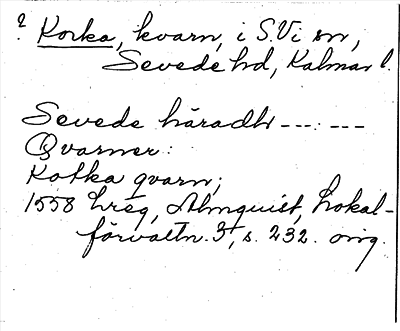 ? Korka, kvarn, i S.Vi sn,
Sevede hd, Kalmar l.
Sevede häradh ---:---
Qvarner:
Kotka qvarn;
1558 hreg, Almquist, Lokal-
förvaltn. 3, s. 232. orig.